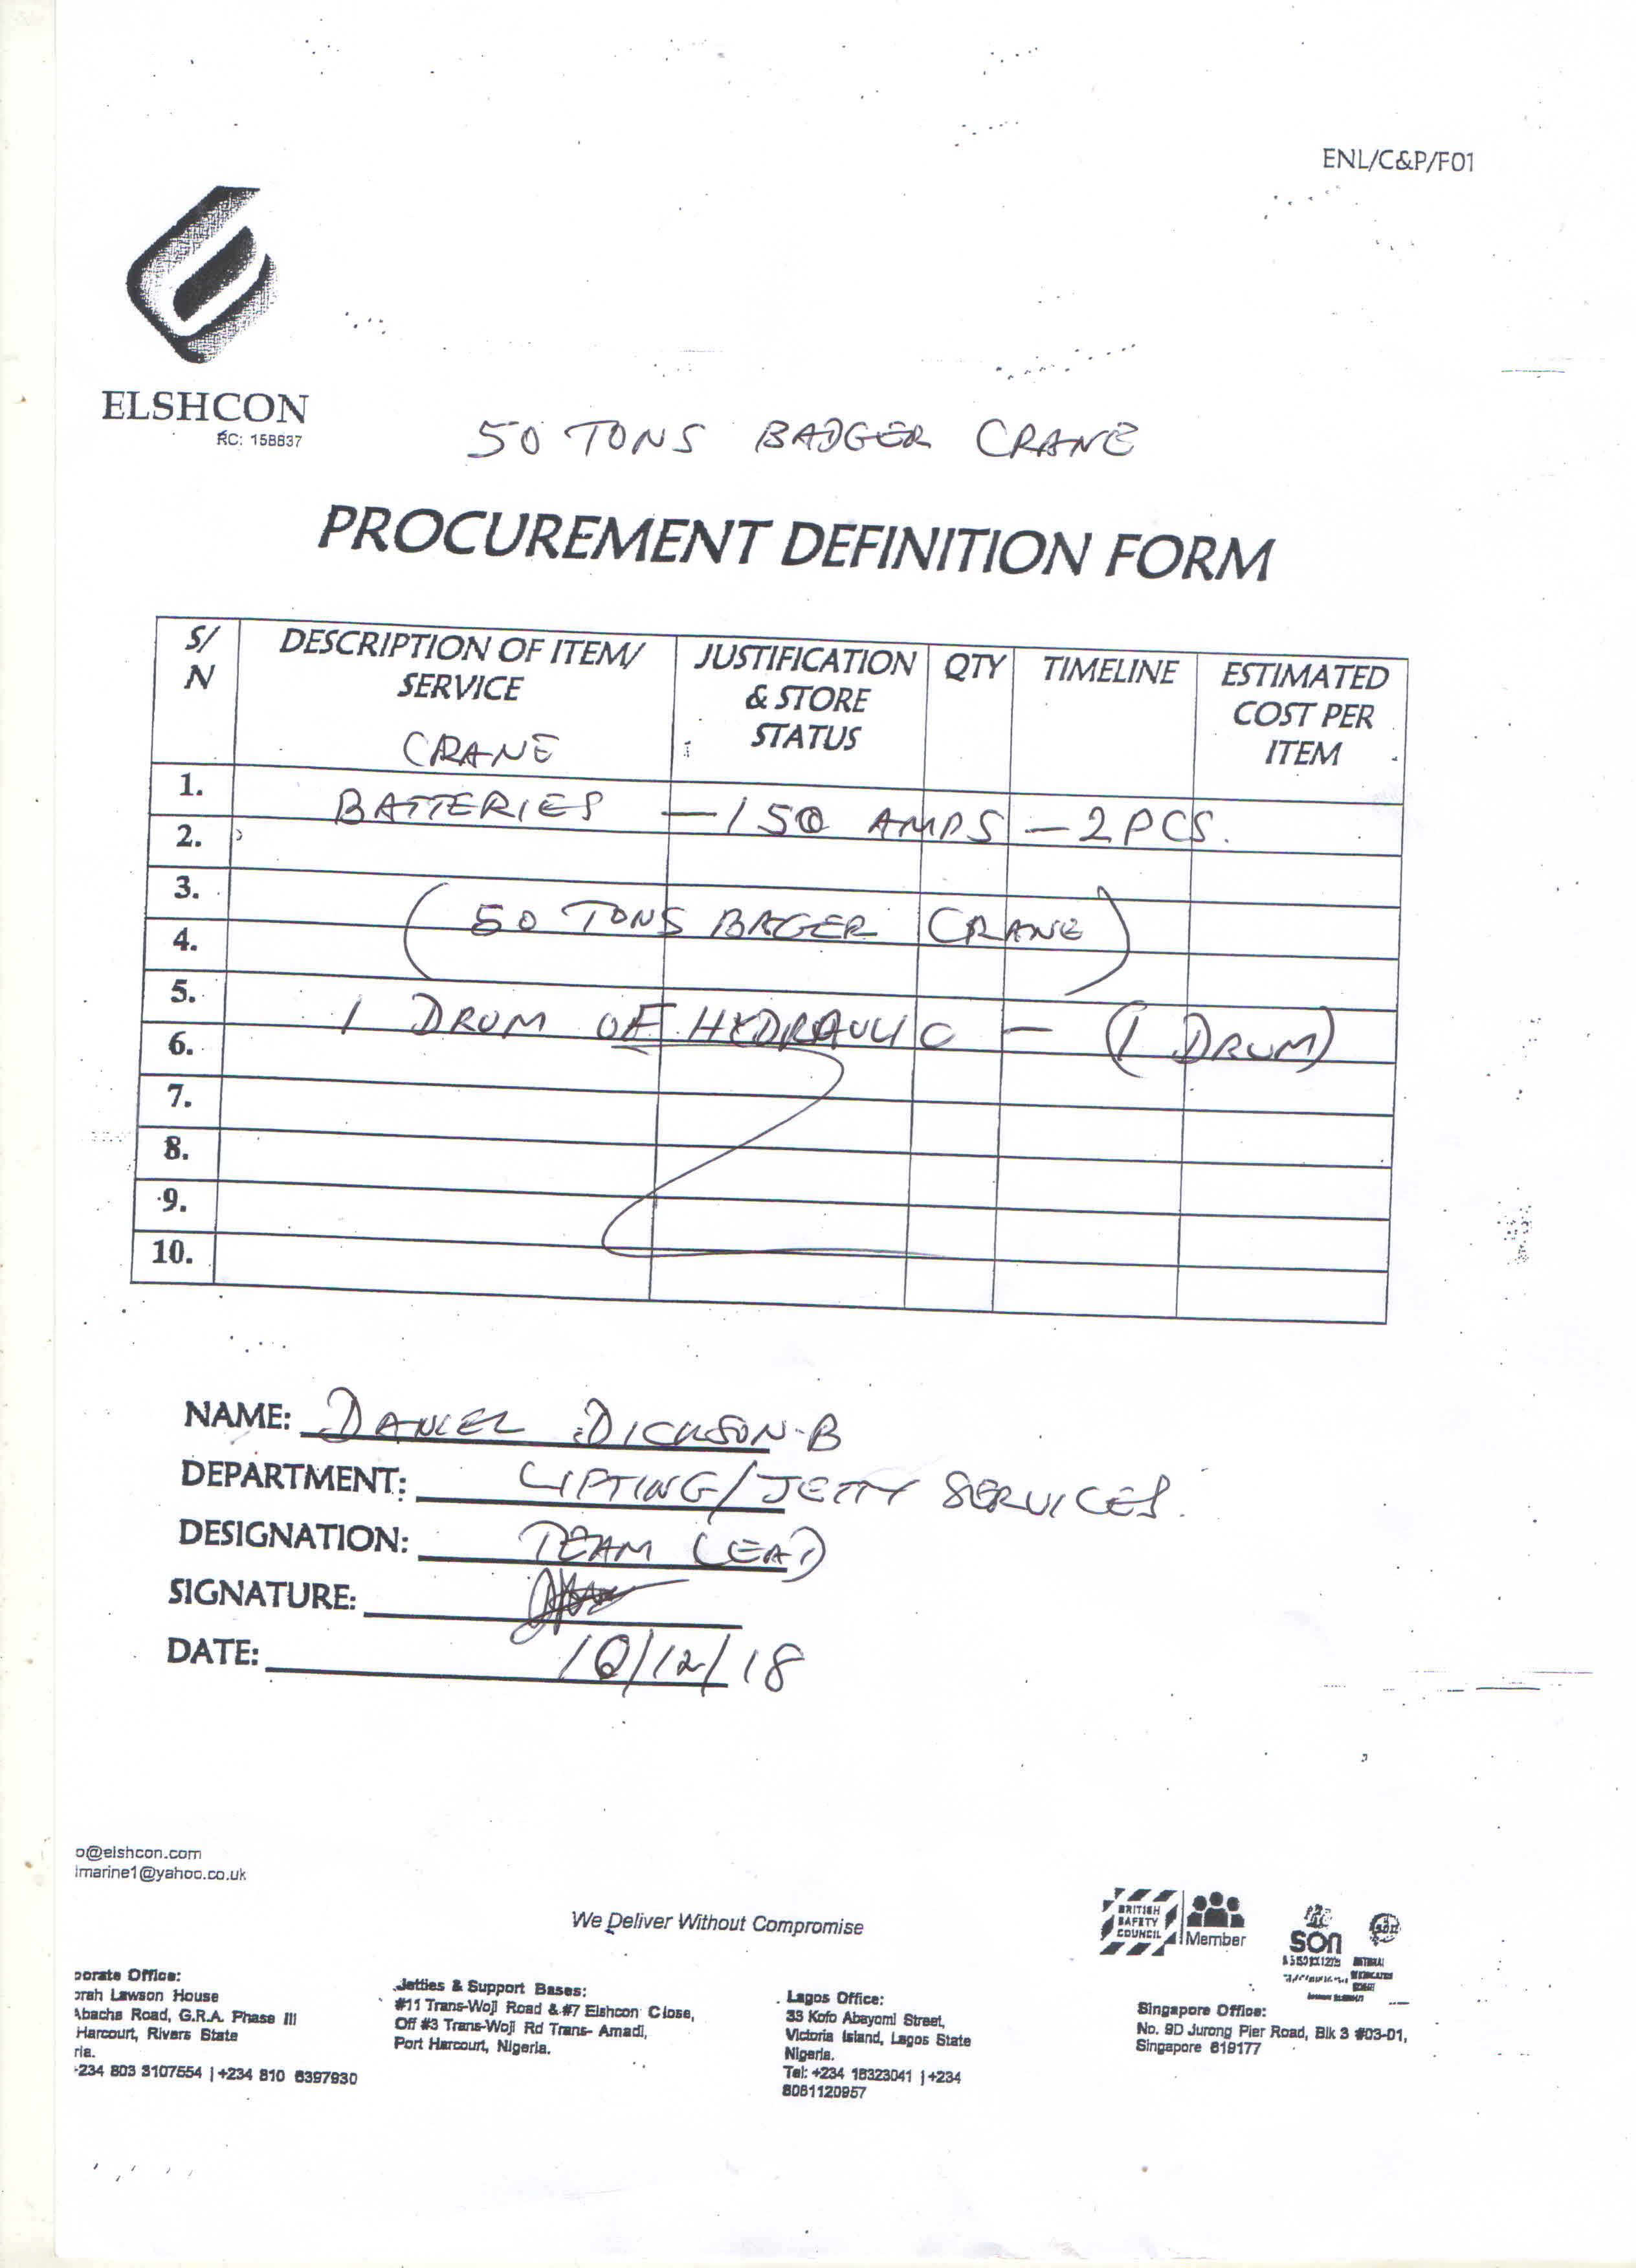 ENL/C&P/F01
ELSHCON
RC: 158837
50 TONS BADGER CRANE
PROCUREMENT DEFINITION FORM
S/N DESCRIPTION OF ITEM/ SERVICE JUSTIFICATION & STORE STATUS QTY TIMELINE ESTIMATED COST PER ITEM
CRANE
1.
BATTERIES — 150 AMPS — 2 PCS.
2.
3.
(50 TONS BAGER CRANE)
4.
5.
1 DRUM OF HYDRAULIC — (1 DRUM)
6.
7.
8.
9.
10.
NAME: DANIEL DICKSON-B
DEPARTMENT: LIFTING/JETTY SERVICES.
DESIGNATION: TEAM LEAD
SIGNATURE:
DATE: 10/12/18
o@elshcon.com
imarine1@yahoo.co.uk
We Deliver Without Compromise
BRITISH
SAFETY
COUNCIL
Member
SON
porate Office:
orah Lawson House
Abacha Road, G.R.A. Phase III
Harcourt, Rivers State
ria.
234 803 3107554 | +234 810 6397930
Jetties & Support Bases:
#11 Trans-Woji Road & #7 Elshcon Close,
Off #3 Trans-Woji Rd Trans- Amadi,
Port Harcourt, Nigeria.
Lagos Office:
33 Kofo Abayomi Street,
Victoria Island, Lagos State
Nigeria.
Tel: +234 18323041 | +234
8081120957
Singapore Office:
No. 9D Jurong Pier Road, Blk 3 #03-01,
Singapore 619177